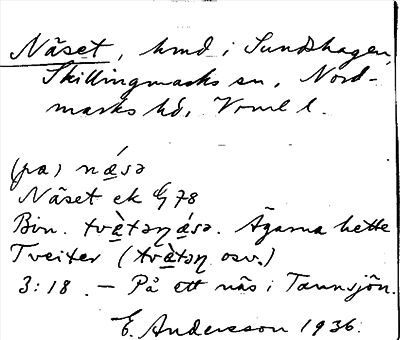 Näset, hmd i Sundshagen,
Skillingmarks sn, Nord-
marks hd, Vrml l.
(pa) nǽsə
Näset ek G 78
Bin. tvæ̀təŋ ǽsə. Ägarna hette
Tveiter (tvæ̀təŋ osv.)
3:18. – På ett näs i Tannsjön.
E. Andersson 1936.